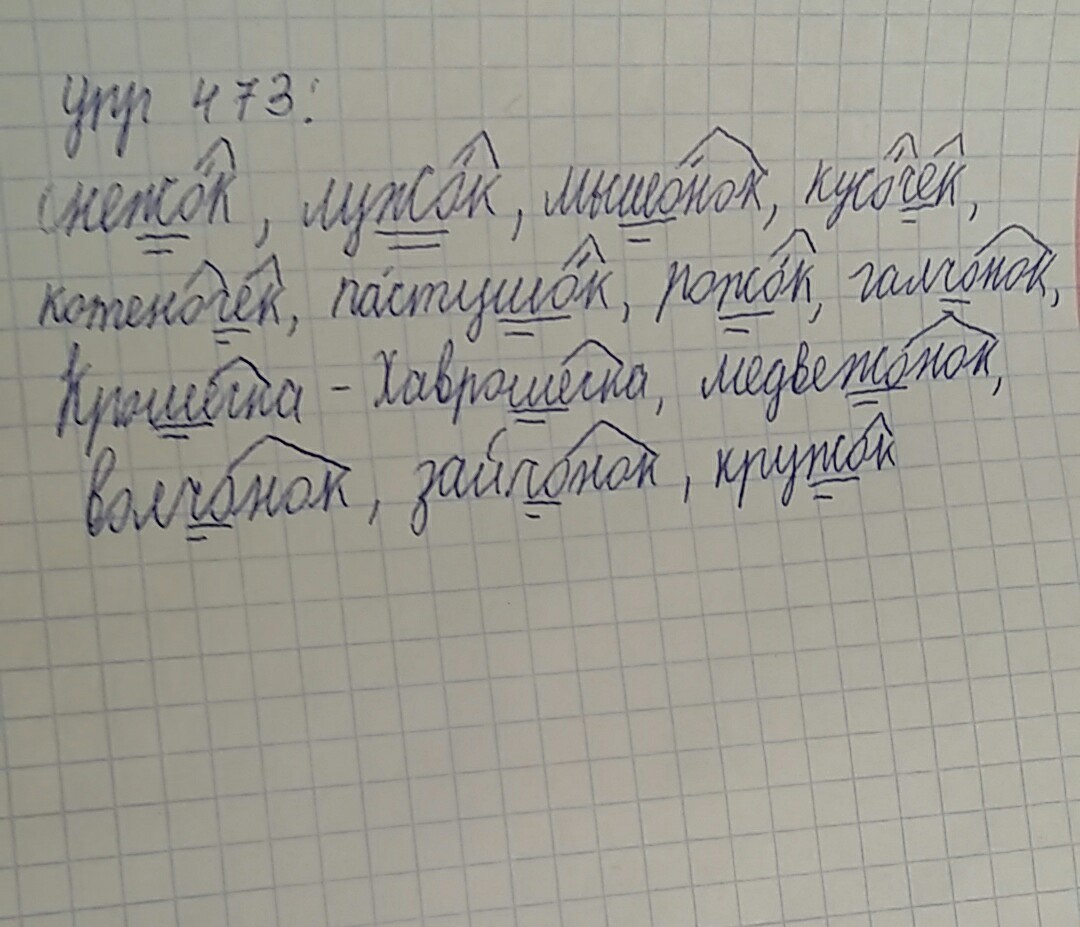 Упр 473:
Снежок, лужок, мышонок, кусочек,
котеночек, пастушок, рожок, галчонок,
Крошечка - Хаврошечка, медвежонок,
волчонок, зайчонок, кружок